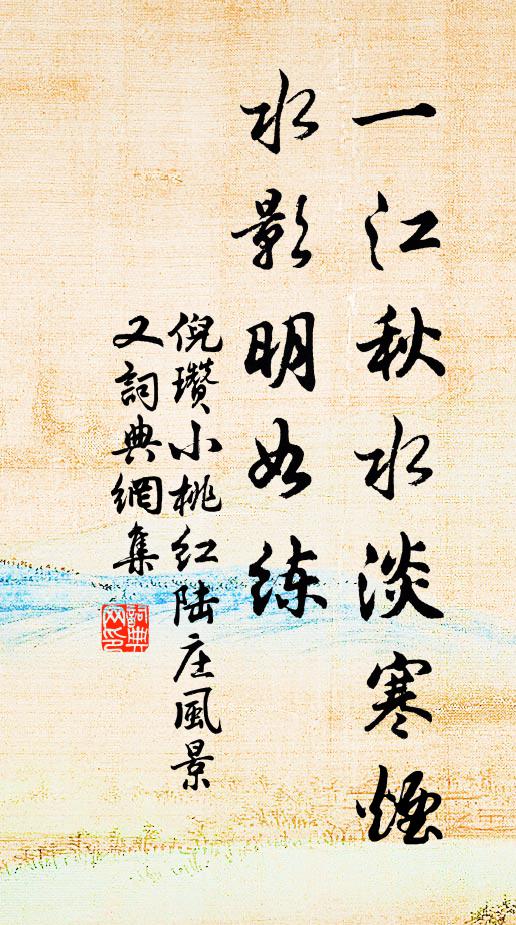 一江秋水淡寒煙
水影明如练
倪瓚小桃红陆庄風景
又詞典網集
詞典
网印